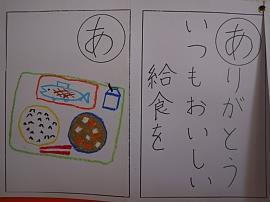 ありがとう
いつもおいしい
給食を
あ